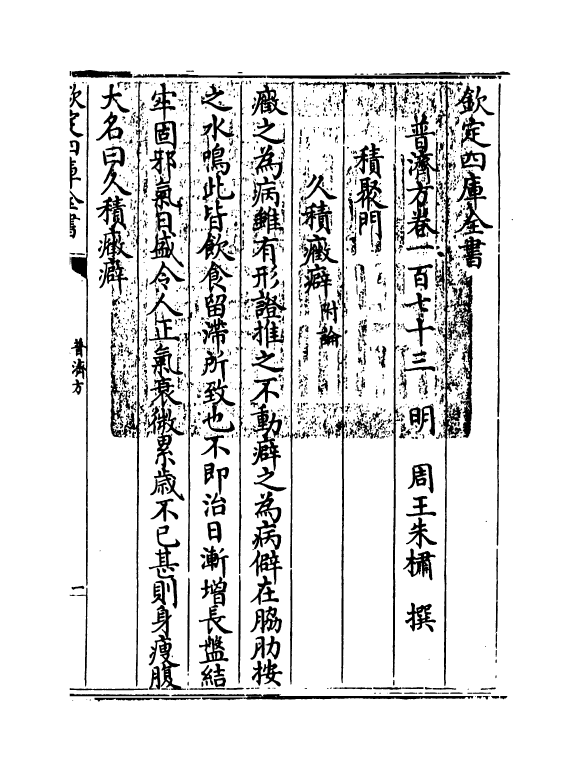 欽定四庫全書
普濟方卷一百七十三 明 周王朱橚 撰
積聚門
久積癥癖附論
癥之為病雖有形證推之不動癖之為病僻在脇肋按
之水鳴此皆飲食留滯所致也不即治日漸增長盤結
牢固邪氣日盛令人正氣衰微累歲不已甚則身瘦腹
大名曰久積癥癖
欽定四庫全書
普濟方
一